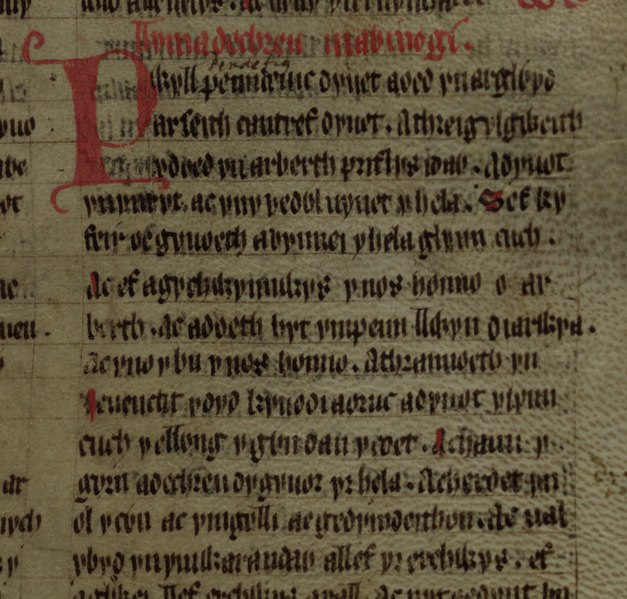 Llyma dechreu mabinogi.
Pwyll pendeuic dyuet aoed ynarglỽyd
arseith cantref dyuet. Athreigylgỽeith
ydoed ynarberth priflys idaỽ. Adyuot
ynyvryt. ac ynyvedỽl uynet yhela. Sef ky
feir oe gyuoeth avynnei yhela glynn cuch.
Ac ef agychỽynnỽys ynos honno o ar
berth. Ac adoeth hyt ympenn llỽyn diarỽya.
Ac yno ybu ynos honno. Athrannoeth yn
ieuenctit ydyd kyuodi aoruc adyuot ylynn
cuch yellỽng ygỽn dan ycoet. Achanu y
gorn adechreu dygyuor yr hela. Acherdet yn
ol ycỽn ac ymgolli aegedymdeithon. Ac ual
ybyd ynymỽarandaỽ allef yr erchỽys. ef
aglyỽei llef erchỽys arall. Ac nyt oedynt